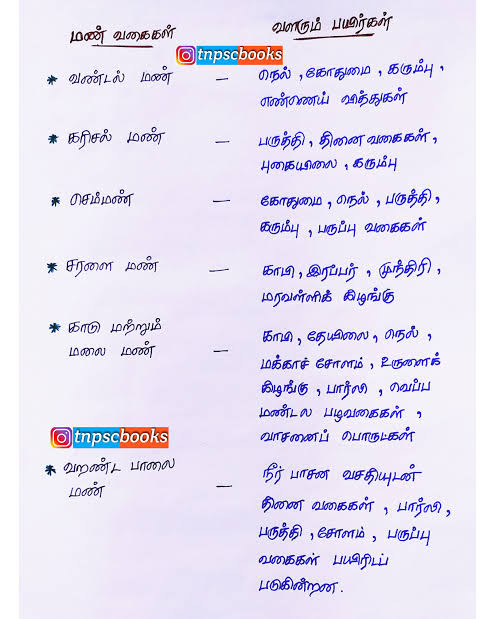 மண் வகைகள்
வளரும் பயிர்கள்
tnpscbooks
* வண்டல் மண் – நெல் , கோதுமை , கரும்பு ,
எண்ணெய் வித்துகள்
* கரிசல் மண் – பருத்தி , தினை வகைகள் ,
புகையிலை , கரும்பு
* செம்மண் – கோதுமை , நெல் , பருத்தி ,
கரும்பு , பருப்பு வகைகள்
* சரளை மண் – காபி , இரப்பர் , முந்திரி ,
மரவள்ளிக் கிழங்கு
* காடு மற்றும்
மலை மண் – காபி , தேயிலை , நெல் ,
மக்காச் சோளம் , உருளைக்
கிழங்கு , பார்லி , வெப்ப
மண்டல பழவகைகள் ,
வாசனைப் பொருட்கள்
tnpscbooks
* வறண்ட பாலை
மண் – நீர் பாசன வசதியுடன்
தினை வகைகள் , பார்லி ,
பருத்தி , சோளம் , பருப்பு
வகைகள் பயிரிடப்
படுகின்றன .